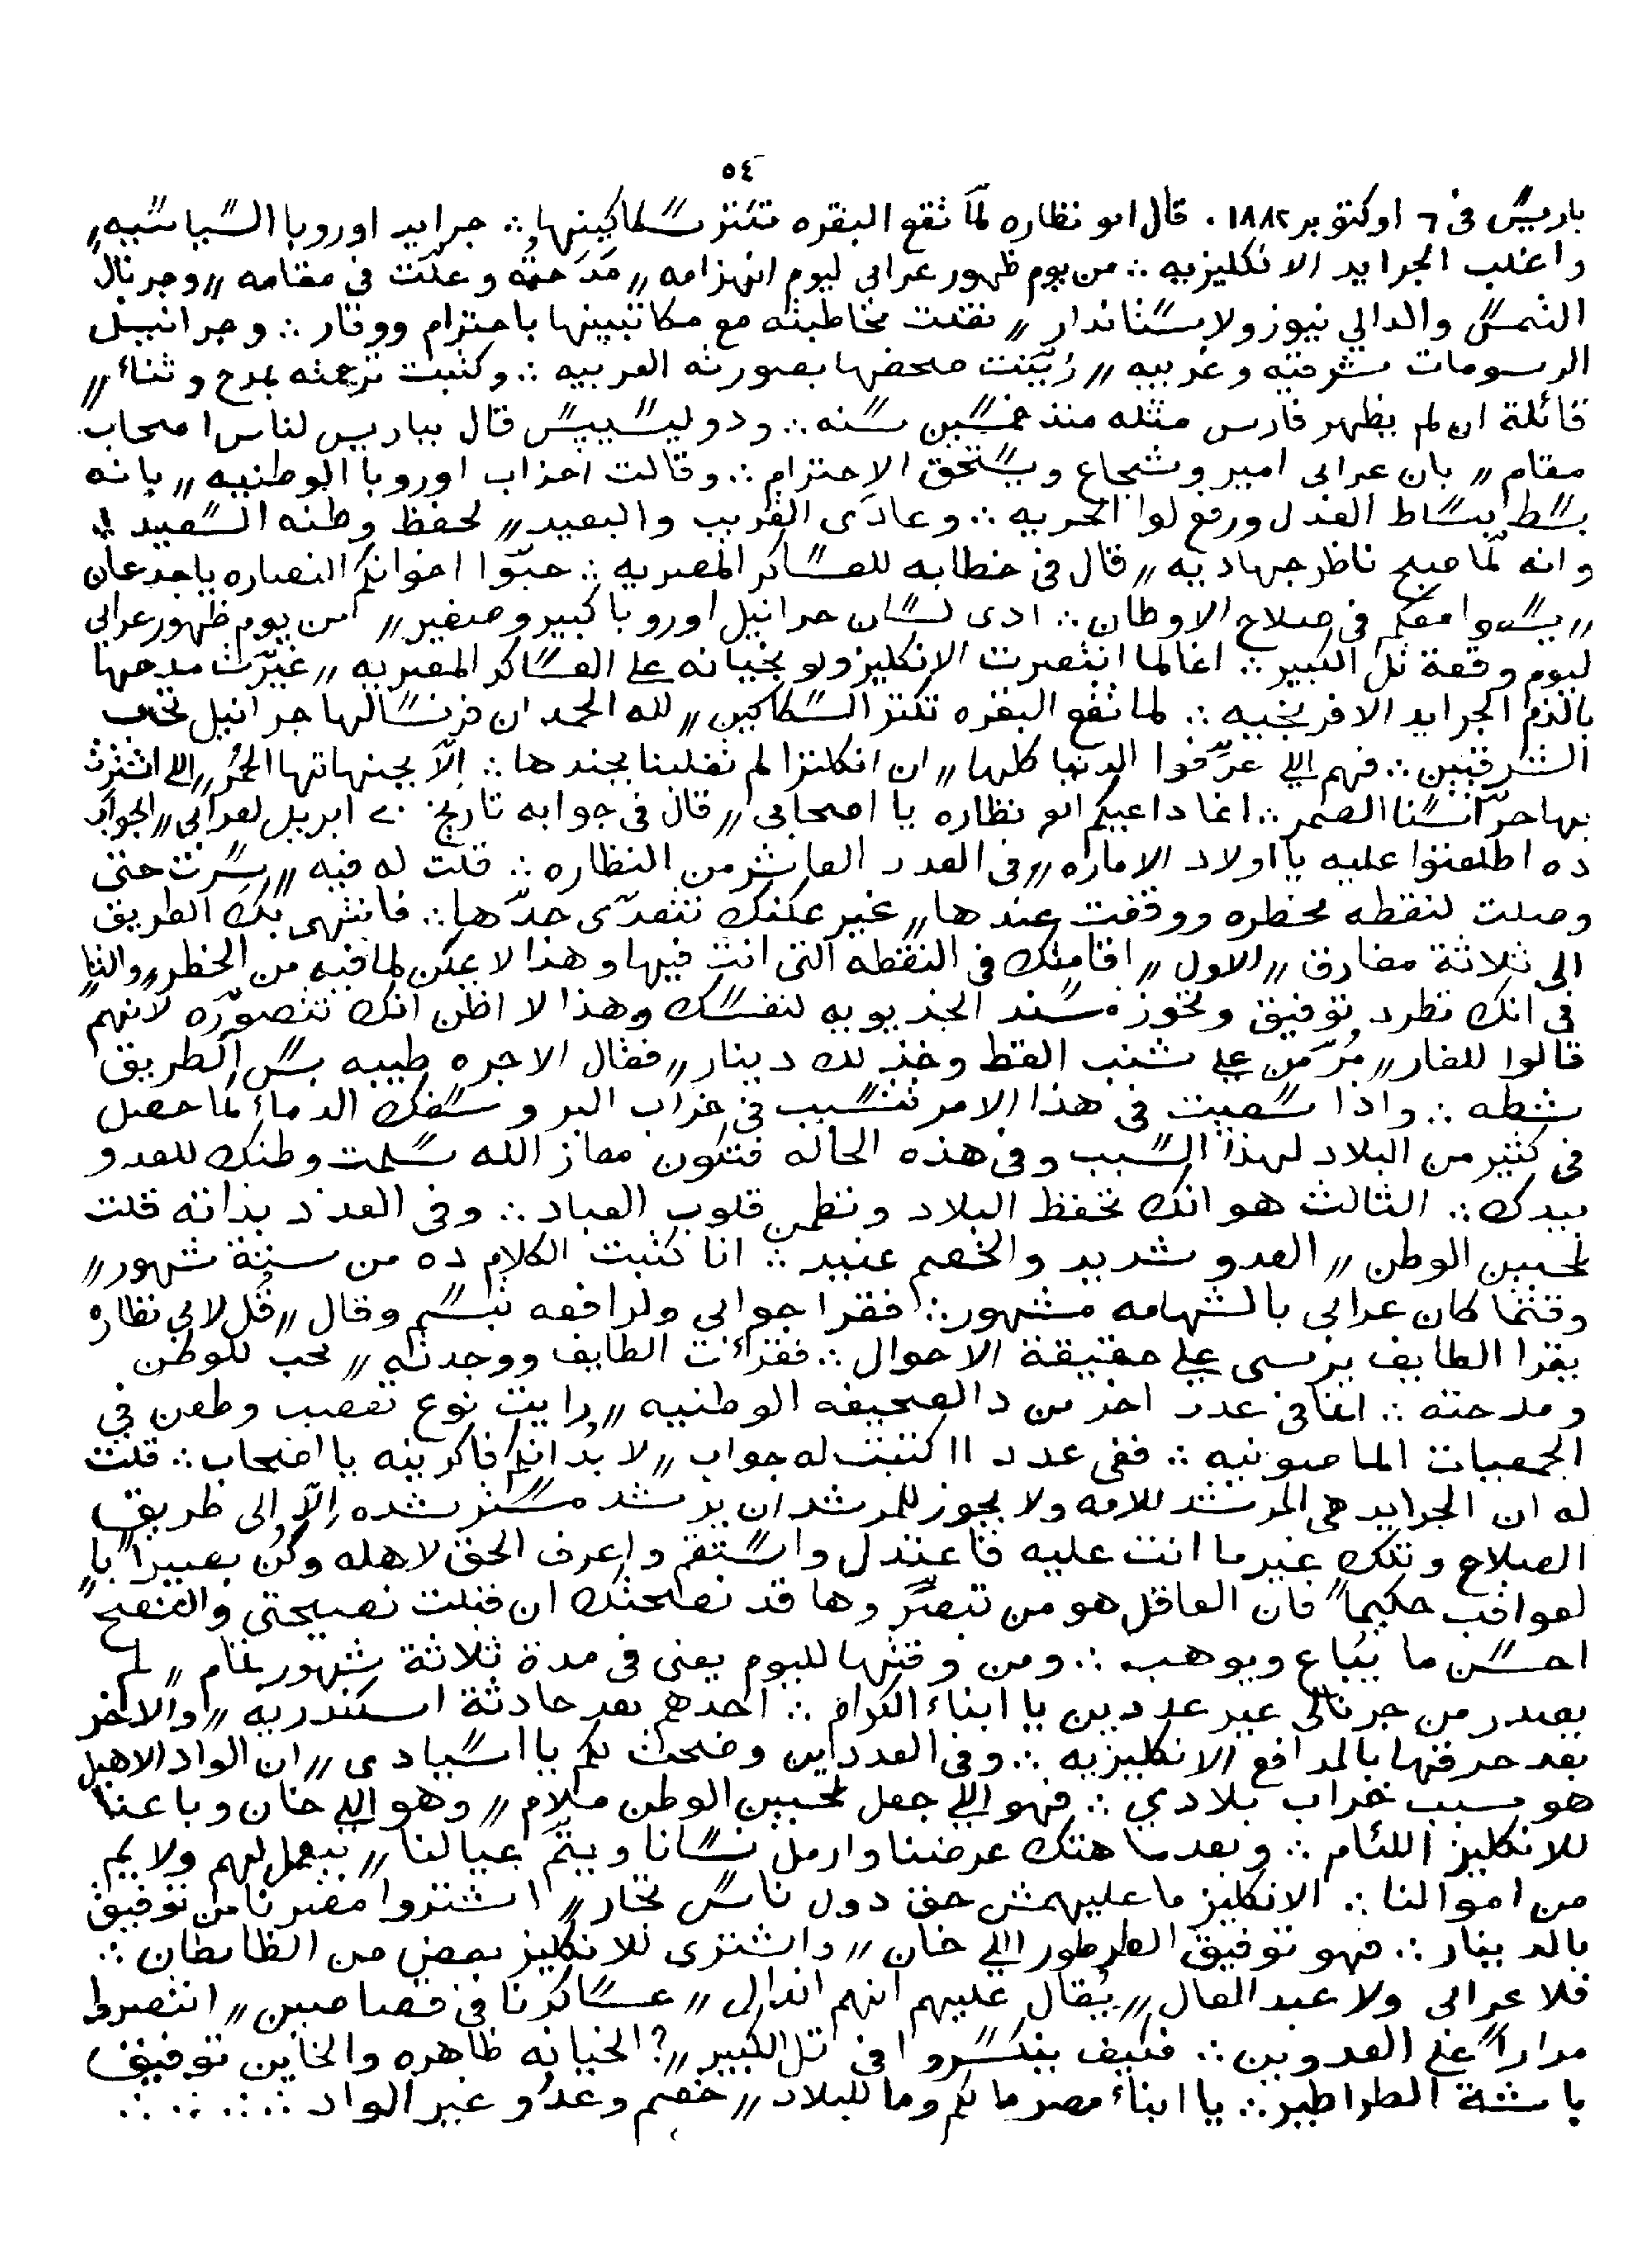 ٥٤
باريس فى ٦ اوكتوبر ١٨٨٢ . قال ابو نظاره لما تقع البقره تكتر سكاكينها ∴ جرايد اوروبا السياسيه ،،
واغلب الجرايد الانكليزيه ∴ من يوم ظهور عرابي ليوم انهزامه ،، مدحته وعلّت في مقامه ،، وجرنال
التمس والدالي نيوز ولاستاندار ،، نقلت مخاطبته مع مكاتبينها باحترام ووقار ∴ وجرانيل
الرسومات شرقيه وغربيه ،، زيّنت صحفها بصورته العربيه ∴ وكتبت ترجمته بمدح وثناء ،،
قائلة ان لم يظهر فارس مثله منذ خمسين سنه ∴ ودوليسيبس قال بباريس لناس اصحاب
مقام ،، بان عرابى امير وشجاع ويستحق الاحترام ∴ وقالت احزاب اوروبا الوطنيه ،، بانه
بسط بساط العدل ورفع لوا الحريه ∴ وعادى القريب والبعيد ،، لحفظ وطنه السعيد ∴
وانه لما صبح ناظر جهاديه ،، قال فى خطابه للعساكر المصريه ∴ حبّوا اخوانكم النصاره ياجدعان
،، يسعوا معكم فى صلاح الاوطان ∴ ادى لسان جرانيل اوروبا كبير وصغير ،، من يوم ظهور عرابي
ليوم وقعة تل الكبير ∴ انما لما انتصرت الانكليز ولو بخيانه على العساكر المصريه ،، غيّرت مدحها
بالذم الجرايد الافرنجيه ∴ لما تقع البقره تكتر السكاكين ،، لله الحمد ان فرنسا لها جرانيل تحب
الشرقيين ∴ فهم اللي عرّفوا الدنيا كلها ،، ان انكلترا لم تغلبنا بجندها ∴ الاّ بجنهاتها الحُمر ،، اللي اشترت
بها حرّاسنا الصمر ∴ انما داعيكم ابو نظاره يا اصحابى ،، قال فى جوابه تاريخ ٢٠ ابريل لعرابى ،، الجواب
ده اطلعتوا عليه يا اولاد الاماره ،، فى العدد العاشر من النظاره ∴ قلت له فيه ،، سرت حتى
وصلت لنقطه مخطره ووقفت عندها ،، غير يمكنك تتعدّى حدّها ∴ فانتهى بك الطريق
الى ثلاثة مفارق ،، الاول ،، اقامتك فى النقطه التى انت فيها وهذا لا يمكن لما فيه من الخطر ،، والثا
فى انك تطرد توفيق وتحوز مسند الخديويه لنفسك وهذا لا اظن انك تتصوره لانهم
قالوا للفار ،، مُرّ من على شنب القط وخذ لك دينار ،، فقال الاجره طيبه بس الطريق
شطه ∴ واذا سعيت فى هذا الامر تتسبب فى خراب البر وسفك الدماء لما حصل
فى كثير من البلاد لهذا السبب وفى هذه الحاله فتكون معاز الله سلمت وطنك للعدو
بيدك ∴ الثالث هو انك تحفظ البلاد وتطمن قلوب العباد ∴ وفى العدد بذاته قلت
لمحبين الوطن ،، العدو شديد والخصم عنيد ∴ انا كتبت الكلام ده من ستة شهور ،،
وقتما كان عرابى بالشهامه مشهور ∴ فقرا جوابى ولرافعه تبسّم وقال ،، قُل لابي نظاره
يقرا الطايف يرسى على حقيقة الاحوال ∴ فقراءت الطايف ووجدته ،، محب للوطن
ومدحته ∴ انما فى عدد اخر من دالصحيفه الوطنيه ،، رايت نوع تعصب وطعن في
الجمعيات الماصونيه ∴ ففى عدد ١١ كتبت له جواب ،، لا بُد انكم فاكرينه يا اصحاب ∴ قلت
له ان الجرايد هى المرشد للامه ولا يجوز للمرشد ان يرشد مسترشده الاّ الى طريق
الصلاح وتلك غير ما انت عليه فاعتدل واستقم واعرف الحق لاهله وكُن بصيراً با
لعواقب حكيماً فان العاقل هو من تبصّر وها قد نصحتك ان قبلت نصيحتى والنصح
احسن ما يباع ويوهب ∴ ومن وقتها لليوم يعنى فى مدة ثلاثة شهور تمام ،، لم
يصدر من جرنالى غير عددين يا ابناء الكرام ∴ احدهم بعد حادثة اسكندريه ،، والاخر
بعد حرقها بالمدافع الانكليزيه ∴ وفى العددين وضحت لكم يا اسيادى ،، ان الواد الاهبل
هو سبب خراب بلادي ∴ فهو اللي جعل لمحبين الوطن ملام ،، وهو اللي خان وباعنا
للانكليز اللئام ∴ وبعدما هتك عرضنا وارمل نسانا ويتّم عيالنا ،، بيعمل لهم ولايم
من اموالنا ∴ الانكليز ما عليهمش حق دول ناس تجار ،، اشتروا مصرنا من توفيق
بالدينار ∴ فهو توفيق الطرطور اللي خان ،، واشترى للانكليز بعض من الظابطان ∴
فلا عرابى ولا عبد العال ،، يُقال عليهم انهم اندال ،، عساكرنا فى قصاصين ،، انتصرط
مراراً على العدوين ∴ فكيف ينكسروا فى تل الكبير ،، ? الخيانه ظاهره والخاين توفيق
باشة الطراطير ∴ يا ابناء مصر ما لكم وما للبلاد ،، خصم وعدُو غير الواد ∴ ∴ ∴